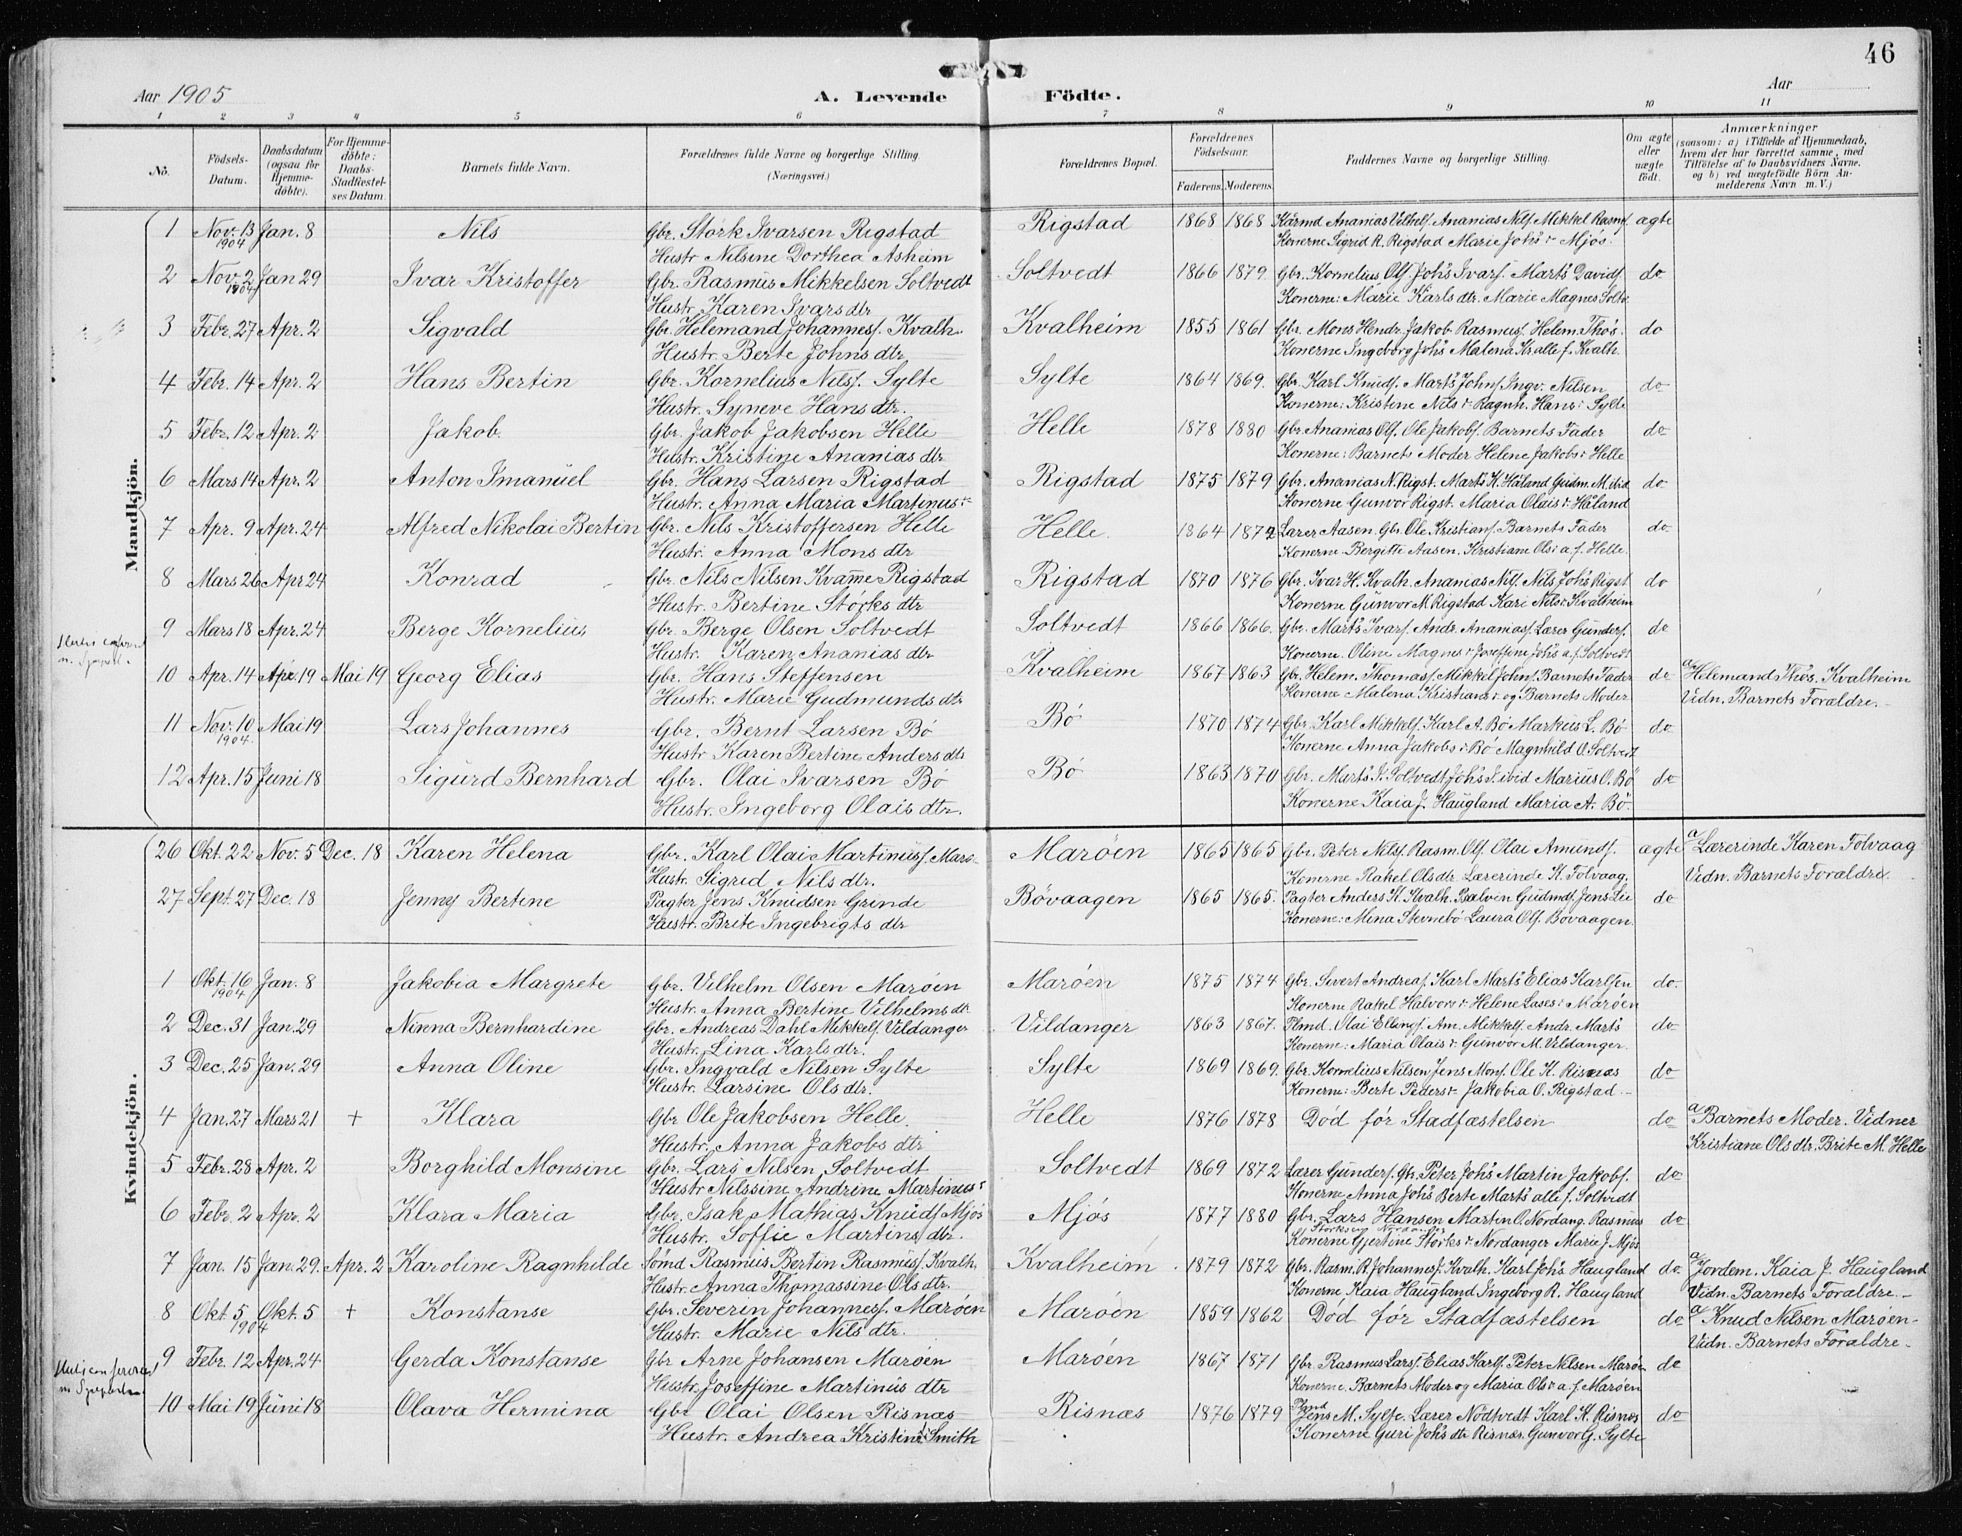 46
Aar 1905 A. Levende Födte. Aar
1 2 3 4 5 6 7 8 9 10 11
No. Födsels-Datum. Daabsdatum (ogsaa for Hjemmedöbte). For Hjemmedöbte: Daabs-Stadfæstelses Datum. Barnets fulde Navn. Forældrenes fulde Navne og borgerlige Stilling. (Næringsvei.) Forældrenes Bopæl. Forældrenes Födselsaar. Faderens. Moderens. Faddernes Navne og borgerlige Stilling. Om ægte eller uægte födt. Anmærkninger (saasom: a) i Tilfælde af Hjemmedaab, hvem der har forrettet samme, med Tilföielse af to Daabsvidners Navne. og b) ved uægtefödte Börn Anmelderens Navn m. V.)
Mandkjön.
1 Nov. 13 1904 Jan. 8 Nils Gbr. Störk Ivarsen Rigstad Rigstad 1868 1868 Kårmd Ananias Vilhelf. Ananias Nilf. Mikkel Rasmf. ægte
Hustr Nilsine Dorthea Asheim Konerne Sigrid R. Rigstad Marie Johs r Mjös.
2 Nov. 2 1904 Jan 29 Ivar Kristoffer Gbr. Rasmus Mikkelsen Soltvedt Soltvedt 1866 1879. Gbr. Kornelius Olf. Johs Ivarf. Marts Davidf. do
Hustr. Karen Ivars dtr Konerne: Marie Karls dtr. Marie Magnes Soltv.
3 Febr. 27 Apr. 2 Sigvald Gbr. Helemand Johannesf. Kvalh. Kvalheim 1855 1861 Gbr. Mons Hendr. Jakob Rasmusf. Helem. Thös. do
Hustr. Berte Johns dtr Konerne Ingeborg Johs Malena Kr. alle f. Kvalh.
4 Febr. 14 Apr. 2 Hans Bertin Gbr. Kornelius Nilsf. Sylte Sylte 1864 1869. Gbr. Karl Knudf. Marts Johnf. Ingv. Nilsen do
Hustr. Syneve Hans dtr. Konerne: Kristine Nils r Ragnh. Hans r Sylte
5 Febr. 12 Apr. 2 Jakob. Gbr. Jakob Jakobsen Helle Helle 1878 1880 Gbr. Ananias Olf. Ole Jakobf. Barnets Fader do
Hustr. Kristine Ananias dtr Konerne: Barnets Moder Helene Jakobs r Helle
6 Mars 14 Apr. 2 Anton Imanuel Gbr. Hans Larsen Rigstad Rigstad 1875 1879 Gbr. Ananias N. Rigst. Marts K. Håland Gudm. M. ibid do
Hustr. Anna Maria Martinus r Konerne Gunvor Rigst. Maria Olais r Håland
7 Apr. 9 Apr. 24 Alfred Nikolai Bertin Gbr. Nils Kristoffersen Helle Helle. 1864 1872 Lærer Aasen. Gbr. Ole Kristianf. Barnets Fader do
Hustr. Anna Mons dtr Konerne Bergitte Aasen. Kristiane Ols r a. f. Helle.
8 Mars 26 Apr 24 Konrad Gbr. Nils Nilsen Kvamme Rigstad Rigstad 1870 1876 Gbr. Ivar H. Kvalh. Ananias Nilf. Nils Johs Rigst do
Hustr. Bertine Störks dtr Konerne Gunvor M. Rigstad Kari Nils r Kvalheim
9 Mars 18 Apr. 24 Berge Kornelius Gbr. Berge Olsen Soltvedt Soltvedt 1866 1866. Gbr. Marts Ivarf. Andr. Ananiasf. Lærer Gunderf. do
Hustr. Karen Ananias dtr Konerne. Oline Magnes r Joseffine Johs a. f. Soltvedt
10 Apr. 14 Apr. 19 Mai 19 Georg Elias Gbr. Hans Steffensen Kvalheim 1867 1863 Gbr. Helem. Thomasf. Mikkel Johnf. Barnets Fader do a/ Helemand Thös. Kvalheim
Hustr. Marie Gudmunds dtr Konerne Malena Kristians r og Barnets Moder Vidn. Barnets Foraldre.
11 Nov. 10 1904. Mai 19 Lars Johannes Gbr. Bernt Larsen Bö Bö 1870 1874 Gbr. Karl Mikkelf. Karl A. Bö Markus L. Bö do
Hustr. Karen Bertine Anders dtr Konerne Anna Jakobs r Bö Magnhild O. Soltvedt
12 Apr. 15 Juni 18 Sigurd Bernhard Gbr. Olai Ivarsen Bö Bö 1863 1870 Gbr. Marts I. Soltvedt Johs I. ibid Marius O. Bö do
Hustr. Ingeborg Olais dtr. Konerne Kaia J. Haugland Maria A. Bö.
26 Okt. 22 Nov. 5 Dec. 18 Karen Helena Gbr. Karl Olai Martinusf. Marö- Maröen 1865 1865 Gbr. Peter Nilsf. Rasm. Olf. Olai Amundf. ægte a/ Lærerinde Karen Folvaag
Hustr. Sigrid Nils dtr. Konerne Rakel Ols dtr. Lærerinde K. Folvaag. Vidn. Barnets Foraldre.
27 Sept. 27 Dec. 18 Jenny Bertine Pagter Jens Knudsen Grinde Bövaagen 1865 1865. Pagter Anders K. Kvalh. Salvin Gudmdf. Jens Lie do
Hustr. Brite Ingebrigts dtr Konerne: Mina Stevnebö Laura Olf. Bövaagen.
Kvindekjön.
1 Okt. 16 1904 Jan. 8 Jakobia Margrete Gbr. Vilhelm Olsen Maröen Maröen 1875 1874 Gbr. Sivert Andreaf. Karl Marts Elias Karlsen do
Hustr. Anna Bertine Vilhelms dtr Konerne Rakel Halvors r Helene Lases r Maröen
2 Dec. 31 Jan. 29 Ninna Bernhardine Gbr. Andreas Dahl Mikkelf. Vildanger Vildanger 1863 1867. Plmd. Olai Ellingf. Am. Mikkelf. Andr. Marts do
Hustr. Lina Karls dtr. Konerne: Maria Olais r Gunvor M. Vildanger.
3 Dec. 25 Jan. 29 Anna Oline Gbr. Ingvald Nilsen Sylte Sylte 1869 1869. Gbr. Kornelius Nilsen Jens Monf. Ole K. Risnæs do
Hustr. Larsine Ols dtr. Konerne: Berte Peders r Jakobia O. Rigstad.
4 Jan. 27 Mars 21 + Klara Gbr Ole Jakobsen Helle. Helle 1876 1878 Död för Stadfæstelsen do a/ Barnets Moder. Vidner
Hustr. Anna Jakobs dtr Kristiane Ols dtr. Brite M. Helle
5 Febr. 28 Apr. 2 Borghild Monsine Gbr. Lars Nilsen Soltvedt Soltvedt 1869 1872 Lærer Gunderf. Gb. Peter Johs Martin Jakobf. do
Hustr Nilssine Andrine Martinus r Konerne Anna Johs Berte Marts alle f. Soltvedt
6 Febr. 2 Apr. 2 Klara Maria Gbr. Isak Mathias Knudf. Mjös Mjös 1877 1880 Gbr. Lars Hansen Martin O. Nordang. Rasmus do
Störksen Nordanger
Hustr. Soffie Martins dtr. Konerne Gjertine Störks r Nordanger Marie J. Mjös
7 Jan. 15 Jan. 29. Apr. 2 Karoline Ragnhilde Sömd Rasmus Bertin Rasmusf. Kvalh. Kvalheim 1879 1872 Gbr. Rasm. R. Johannesf. Kvalh. Karl Johs Haugland do a/ Jordem. Kaia J. Haugland
Hustr. Anna Thomassine Ols dtr. Konerne Kaia Haugland Ingeborg R. Haugland Vidn. Barnets Foraldre.
8 Okt. 5 1904 Okt. 5 + Konstanse Gbr. Severin Johannesf. Maröen Maröen 1859 1862 Död för Stadfæstelsen do a/ Knud Nilsen Maröen
Hustr. Marie Nils dtr. Vidn. Barnets Foraldre
9 Febr. 12 Apr. 24 Gerda Konstanse Gbr Arne Johansen Maröen Maröen 1867 1871 Gbr. Rasmus Larsf. Elias Karlf. Peter Nilsen Maröe do
Hustr. Joseffine Martinus dtr Konerne. Barnets Moder og Maria Ols r a. f. Maröen
10 Mai 19 Juni 18 Olava Hermina Gbr Olai Olsen Risnæs Risnæs 1876 1879 Plmd Jens M. Sylte. Lærer Nödtvedt Karl K. Risnæs do
Hustr. Andrea Kristine Smith Konerne Guri Johs dtr Risnæs. Gunvor G. Sylte